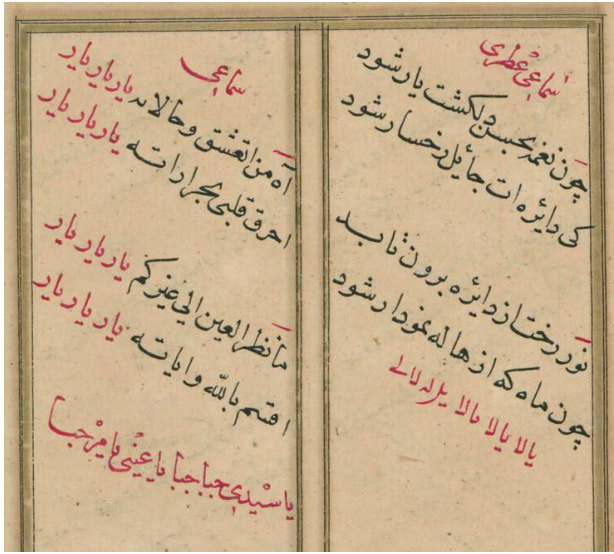 سماعی عطری
چون نغمه بحسن دلکشت یار شود
کی دائره ات حائل رخسار شود
نور رخت از دائره برون تابد
چون ماه که از هاله نمودار شود
یالا یالا یالا یلللالی
سماعی
آه من العشق وحالاته یار یار یار
احرق قلبی بحراراته یار یار یار
ما نظر العین الی غیرکم یار یار یار
اقسم بالله وایاته یار یار یار
یا سیدی جبا جبا یا عینی یا مرحبا